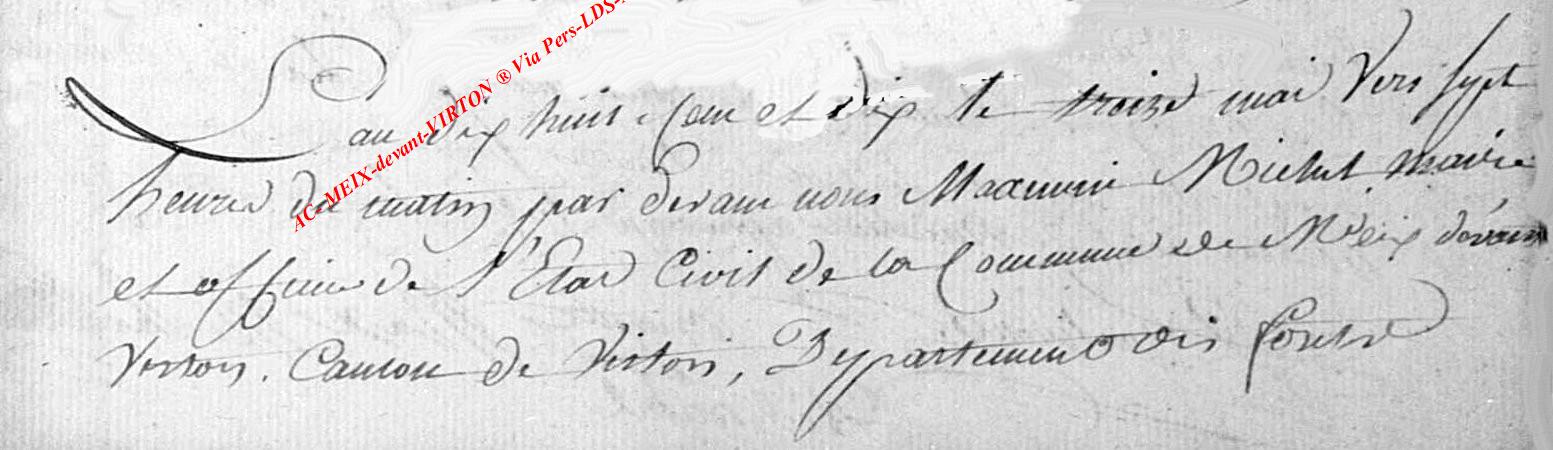 AC-MEIX-devant-VIRTON ® Via Pers-LDS-
L'an dix huit cent et dix le treize mai Vers sept
heures du matin par devant nous Maximin Michel maire
et officier de l'Etat Civil de la Commune de Meix dévant
Virton. Canton de Virton, Departement des forets